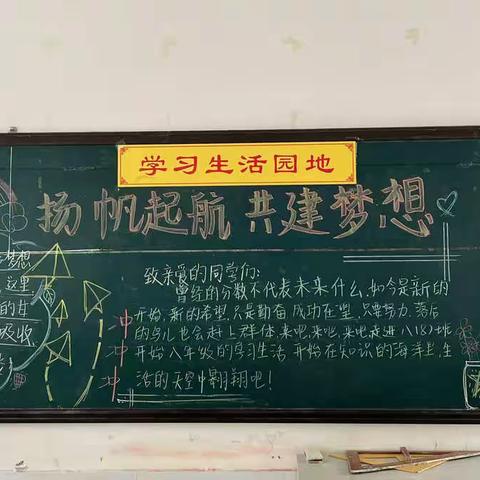 学习生活园地
扬帆起航 共建梦想
致亲爱的同学们:
曾经的分数不代表未来什么,如今是新的
开始,新的希望,只是勤奋 成功在望,只要努力,落后
的鸟儿也会赶上群体,来吧,来吧,来吧走进八(8)班
开始八年级的学习生活 开始在知识的海洋上,生
活的天空中翱翔吧!
梦想
这里
的甘
吸收
冲
冲
冲